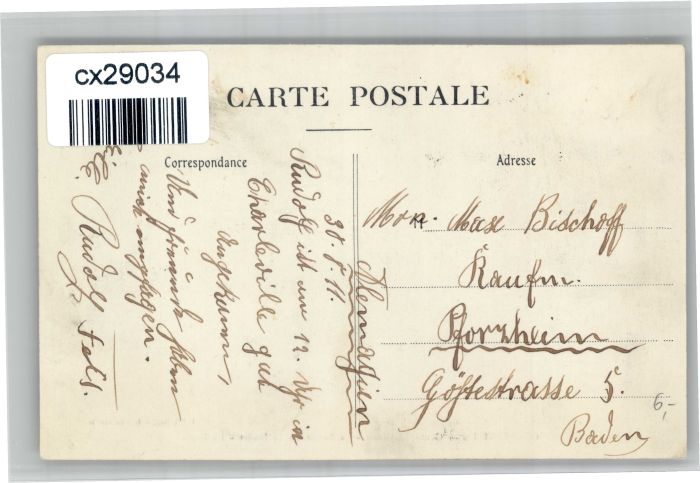 cx29034
CARTE POSTALE
Correspondance
Adresse
30. 5. 11.
Rudolf ist um 12. Uhr in
Charleville gut
angekomm,
Und
mich empfagen.
Rudolf Fels.
Max Bischoff
Kaufm.
Pforzheim
Göthestrasse 5.
Baden
6,-